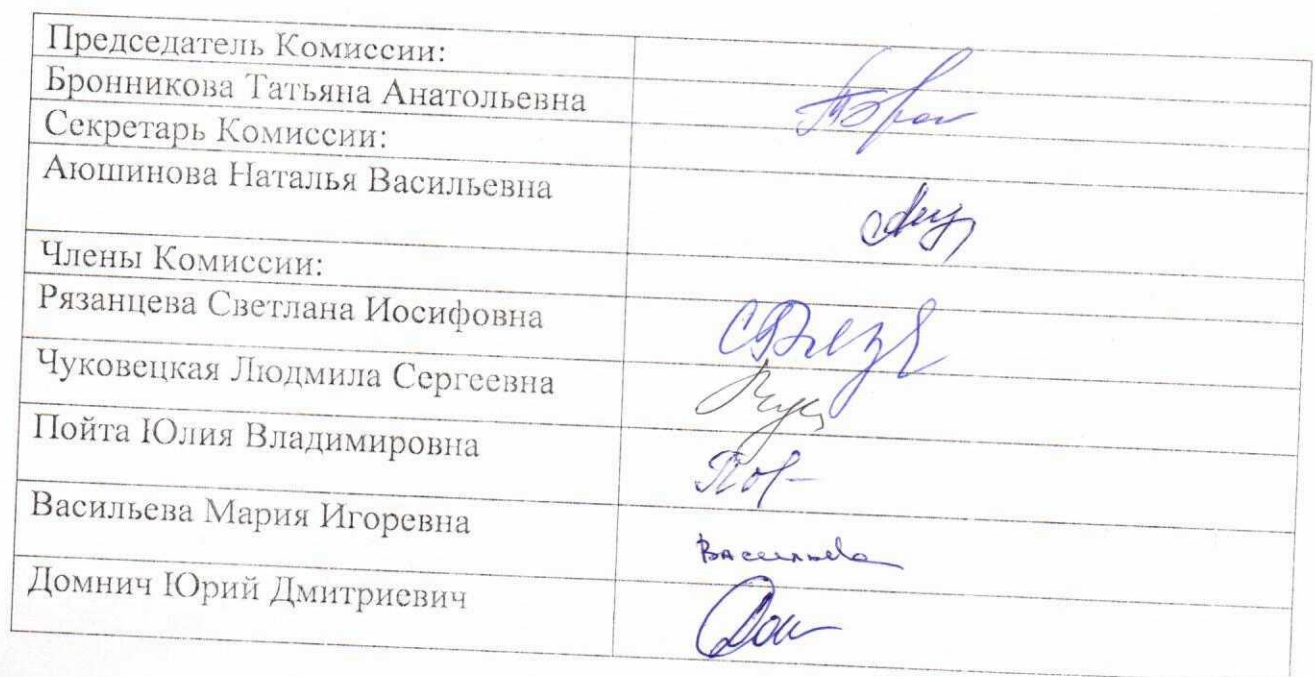 Председатель Комиссии:
Бронникова Татьяна Анатольевна
Секретарь Комиссии:
Аюшинова Наталья Васильевна
Члены Комиссии:
Рязанцева Светлана Иосифовна
Чуковецкая Людмила Сергеевна
Пойта Юлия Владимировна
Васильева Мария Игоревна
Васильева
Домнич Юрий Дмитриевич